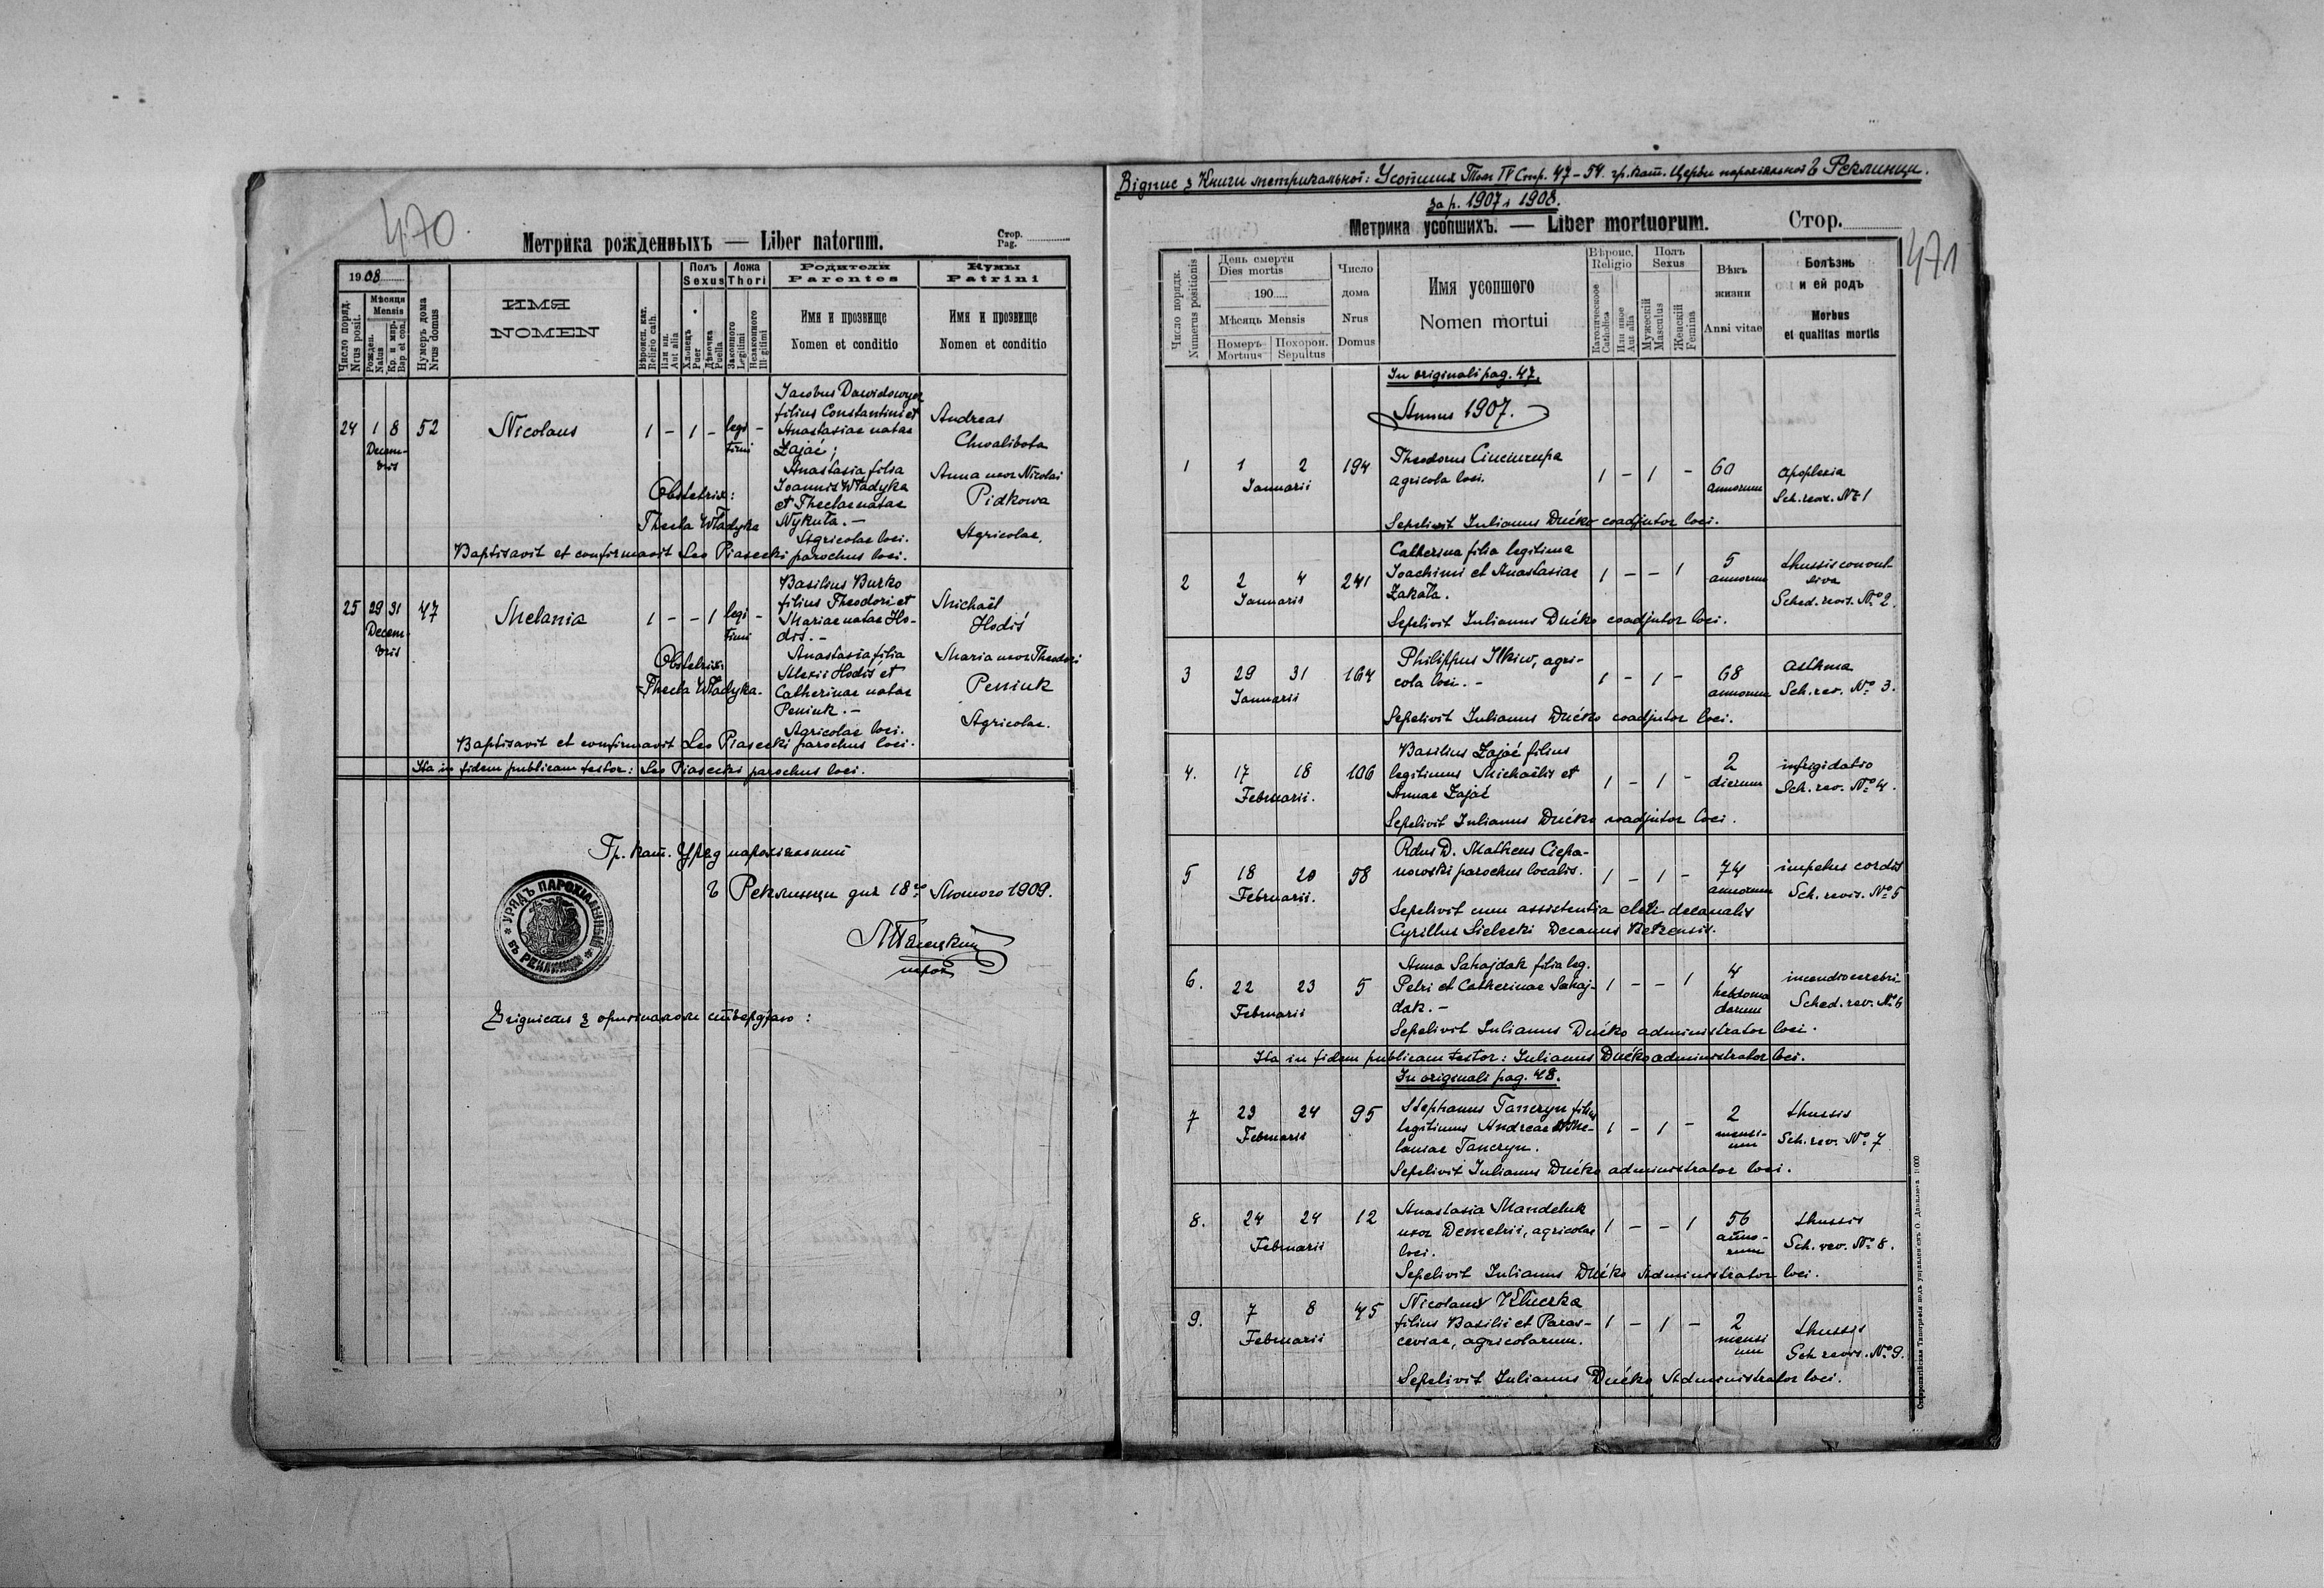 470.
Метрика рожденныхъ — Liber natorum.
Стор.
Pag.
1908
Число поряд.
Nrus posit.
Мѣсяця
Mensis
Рожден.
Natus
Кр. и мир.
Bap et con.
Нумеръ дома
Nrus domus
ИМЯ
NOMEN
Вѣроисп. кат.
Religio cath.
Или ин.
Aut alia
Полъ
Sexus
Хлопецъ
Puer
Дѣвочка
Puella
Ложа
Thori
Законного
Legitimi
Незаконного
Illegitimi
Родители
Parentes
Имя и прозвище
Nomen et conditio
Кумы
Patrini
Имя и прозвище
Nomen et conditio
24 1 8 52 Nicolaus 1 – 1 – legi- –
Decem-
bris
timi
Jacobus Dawidowycz
filius Constantini et
Anastasiae natae
Zajać;
Anastasia filia
Joannis Władyka
et Theclae natae
Nykuła. –
Agricolae loci.
Andreas
Chwalibota
Anna uxor Nicolai
Pidkowa
Agricolae.
Obstetrix:
Thecla Władyka
Baptisavit et confirmavit Leo Piasecki parochus loci.
25 29 31 47 Melania 1 – – 1 legi –
Decem-
bris
timi
Basilius Burko
filius Theodori et
Mariae natae Ho-
diś. –
Anastasia filia
Alexii Hodiś et
Catherinae natae
Peniuk. –
Agricolae loci.
Michaël
Hodiś
Maria uxor Theodori
Peniuk
Agricolae.
Obstetrix:
Thecla Władyka.
Baptisavit et confirmavit Leo Piasecki parochus loci.
Ita in fidem publicam testor: Leo Piasecki parochus loci.
Гр. кат. Уряд парохіяльний
в Реклинци дня 18го Лютого 1909.
УРЯДЪ ПАРОХІАЛЬНЫЙ
ВЪ РЕКЛИНЦИ
Л Пясецкий
парох
Згідність з оригіналом стверджаю:
Відпис з Книги метрикальної: Усопших Том IV Стр. 47–54. гр. кат. Церкви парохіяльної в Реклинци.
за р. 1907 і 1908.
Метрика усопшихъ. — Liber mortuorum.
Стор.
471
Число порядк.
Numerus positionis
День смерти
Dies mortis
190
Мѣсяць Mensis
Номеръ
Mortuus
Похорон.
Sepultus
Число
дома
Nrus
Domus
Имя усопшого
Nomen mortui
Вѣроис.
Religio
Католическое
Catholica
Или иное
Aut alia
Полъ
Sexus
Мужескій
Masculus
Женскій
Femina
Вѣкъ
жизни
Anni vitae
Болѣзнь
и ей родъ
Morbus
et qualitas mortis
In originali pag. 47.
Annus 1907.
1 1 2 194 Theodorus Ciuciurupa 1 – 1 – 60 apoplexia
Januarii agricola loci. annorum Sch. revis. № 1
Sepelivit Julianus Dućko coadjutor loci.
2 2 4 241 Catherina filia legitima 1 – – 1 5 thussis convul
Januarii Joachimi et Anastasiae annorum siva
Zakała. Sched. revis. № 2.
Sepelivit Julianus Dućko coadjutor loci.
3 29 31 164 Philippus Ilkiw, agri- 1 – 1 – 68 asthma
Januarii cola loci. – annorum Sch. rev. № 3.
Sepelivit Julianus Dućko coadjutor loci.
4. 17 18 106 Basilius Zajać filius 1 – 1 – 2 infrigidatio
Februarii. legitimus Michaëlis et dierum Sch. rev. № 4.
Annae Zajać
Sepelivit Julianus Dućko coadjutor loci.
5 18 20 58 Rdus D. Matheus Ciepa- 1 – 1 – 74 impetus cordis
Februarii. nowski parochus localis. annorum Sch. revis. № 5
Sepelivit cum assistentia cleri decanalis
Cyrillus Sielecki Decanus Bełzensis.
6. 22 23 5 Anna Sahajdak filia leg. 1 – – 1 4 incendio cerebri
Februarii Petri et Catherinae Sahaj- hebdoma Sched. rev. № 6
dak. – darum
Sepelivit Julianus Dućko administrator loci.
Ita in fidem publicam testor: Julianus Dućko administrator loci.
In originali pag. 48.
7 23 24 95 Stephanus Tanczyn filius 1 – 1 – 2 thussis
Februarii legitimus Andreae et Me- mensi- Sch. rev. № 7
laniae Tanczyn. um
Sepelivit Julianus Dućko administrator loci.
8. 24 24 12 Anastasia Mandeluk 1 – – 1 56 thussis
Februarii uxor Demetrii, agricolae anno- Sch. rev. № 8.
loci. rum
Sepelivit Julianus Dućko Administrator loci.
9. 7 8 45 Nicolaus Kluczka 1 – 1 – 2 thussis
Februarii filius Basilii et Paras- mensi Sch revis. № 9.
ceviae, agricolarum. um
Sepelivit Julianus Dućko Administrator loci.